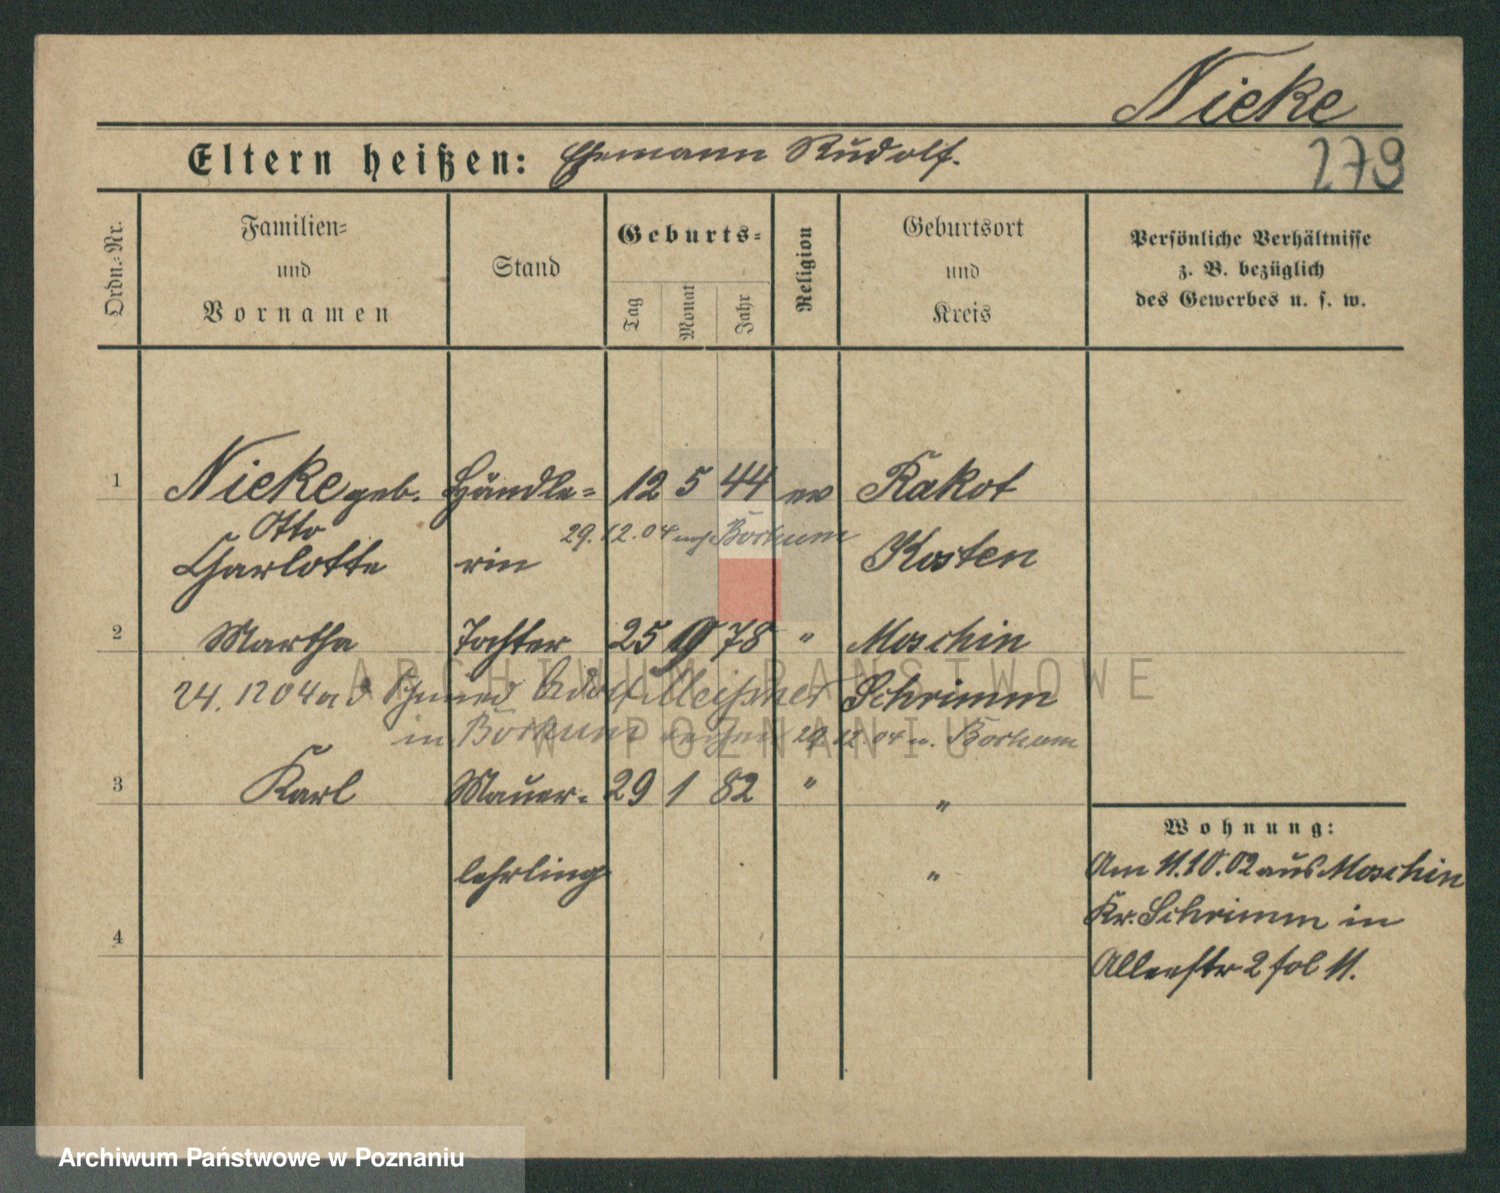 Nieke
Eltern heißen: Ehemann Rudolf.
279
Ordn.-Nr.
Familien- und Vornamen
Stand
Geburts-
Tag
Monat
Jahr
Religion
Geburtsort und Kreis
Persönliche Verhältnisse
z. B. bezüglich
des Gewerbes u. s. w.
1 Nieke geb. Händle- 12 5 44 ev Rakot
Otto
29.12.04 nach Borkum
Charlotte rin Kosten
2 Martha Tochter 25 9 78 " Moschin
24. 12 04 Adolf Meißner Schrimm
in Borkum 29 12.04 n. Borkum
3 Karl Maurer- 29 1 82 " "
Wohnung:
lehrling "
Am 11.10.02 aus Moschin
Kr. Schrimm in
4
Alleestr 2 fol 11.
ARCHIWUM PAŃSTWOWE
W POZNANIU
Archiwum Państwowe w Poznaniu